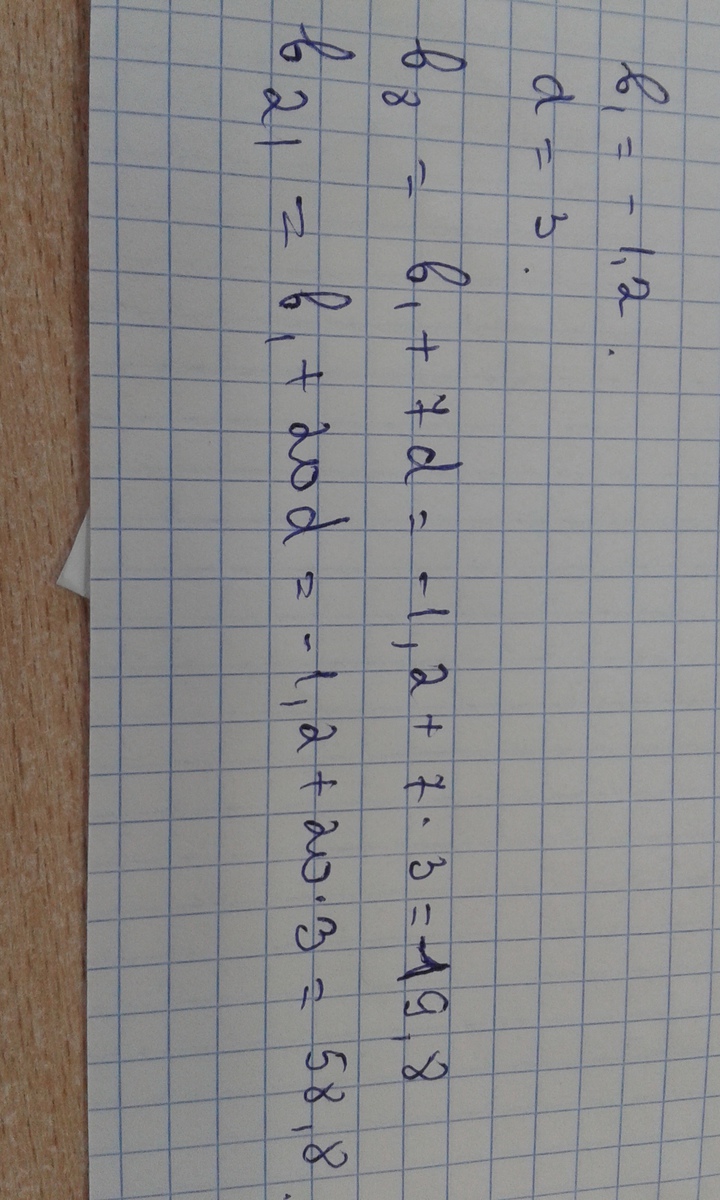 b₁ = -1,2.
d = 3.
b₈ = b₁ + 7d = -1,2 + 7·3 = 19,8
b₂₁ = b₁ + 20d = -1,2 + 20·3 = 58,8.